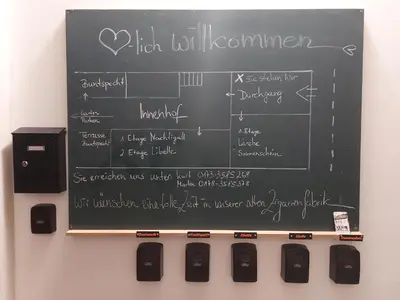 ♡-lich willkommen
Buntspecht
X Sie stehen hier
Durchgang
Innenhof
Garten
Terrasse
Buntspecht
1 Etage Nachtigall
2 Etage Libelle
1 Etage
Lerche
Sonnenschein
Sie erreichen uns unter:
Wir wünschen eine tolle Zeit in unserer alten Zigarrenfabrik